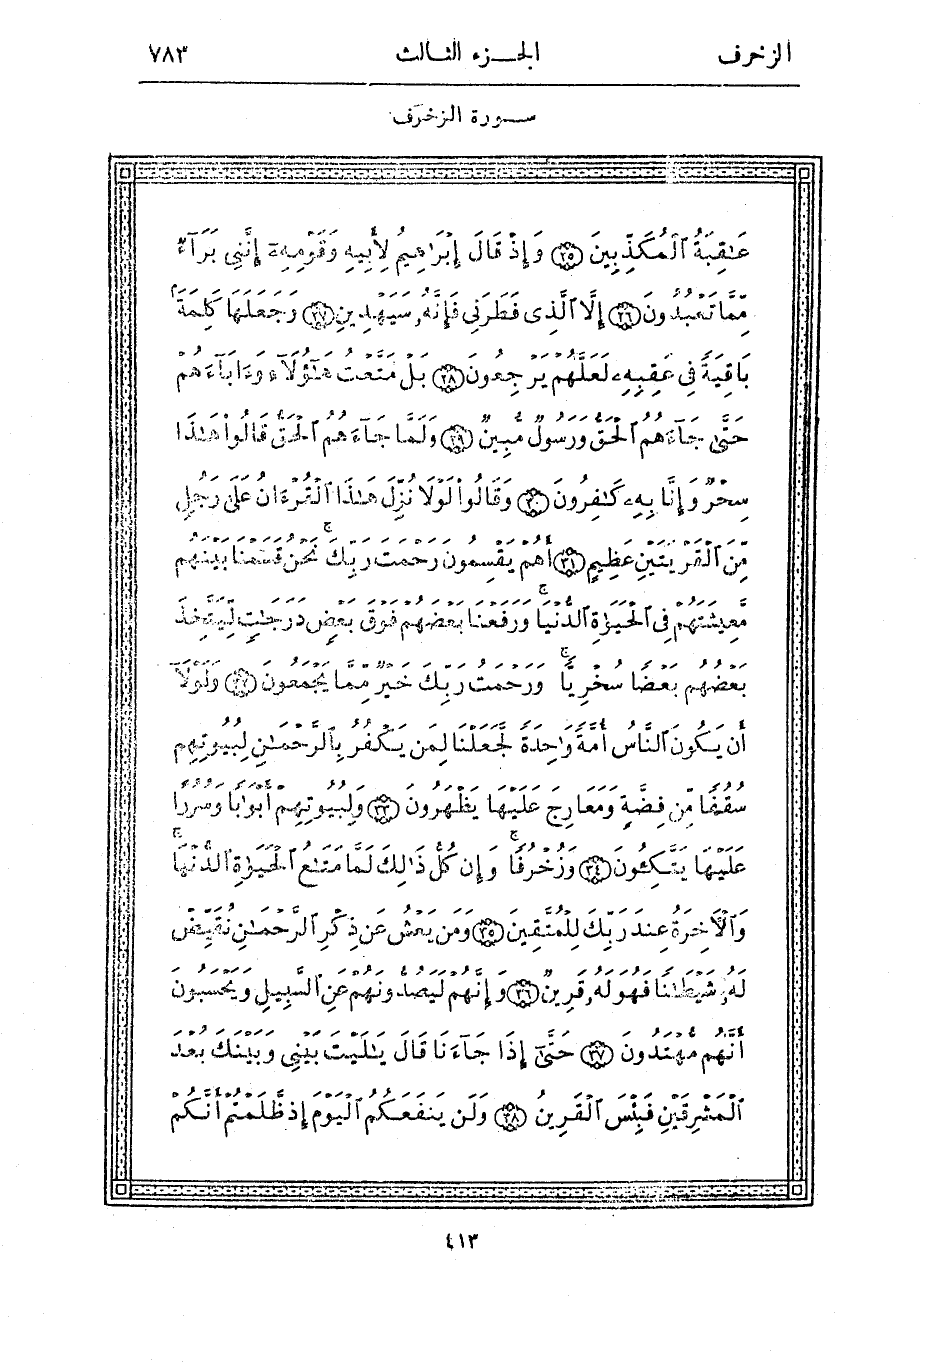 الزخرف الجزء الثالث ٧٨٣
سورة الزخرف
عَٰقِبَةُ ٱلْمُكَذِّبِينَ ۝٢٥ وَإِذْ قَالَ إِبْرَٰهِيمُ لِأَبِيهِ وَقَوْمِهِۦٓ إِنَّنِى بَرَآءٌ
مِّمَّا تَعْبُدُونَ ۝٢٦ إِلَّا ٱلَّذِى فَطَرَنِى فَإِنَّهُۥ سَيَهْدِينِ ۝٢٧ وَجَعَلَهَا كَلِمَةًۢ
بَاقِيَةً فِى عَقِبِهِۦ لَعَلَّهُمْ يَرْجِعُونَ ۝٢٨ بَلْ مَتَّعْتُ هَٰٓؤُلَآءِ وَءَابَآءَهُمْ
حَتَّىٰ جَآءَهُمُ ٱلْحَقُّ وَرَسُولٌ مُّبِينٌ ۝٢٩ وَلَمَّا جَآءَهُمُ ٱلْحَقُّ قَالُوا۟ هَٰذَا
سِحْرٌ وَإِنَّا بِهِۦ كَٰفِرُونَ ۝٣٠ وَقَالُوا۟ لَوْلَا نُزِّلَ هَٰذَا ٱلْقُرْءَانُ عَلَىٰ رَجُلٍ
مِّنَ ٱلْقَرْيَتَيْنِ عَظِيمٍ ۝٣١ أَهُمْ يَقْسِمُونَ رَحْمَتَ رَبِّكَ ۚ نَحْنُ قَسَمْنَا بَيْنَهُم
مَّعِيشَتَهُمْ فِى ٱلْحَيَوٰةِ ٱلدُّنْيَا ۚ وَرَفَعْنَا بَعْضَهُمْ فَوْقَ بَعْضٍ دَرَجَٰتٍ لِّيَتَّخِذَ
بَعْضُهُم بَعْضًا سُخْرِيًّا ۗ وَرَحْمَتُ رَبِّكَ خَيْرٌ مِّمَّا يَجْمَعُونَ ۝٣٢ وَلَوْلَآ
أَن يَكُونَ ٱلنَّاسُ أُمَّةً وَٰحِدَةً لَّجَعَلْنَا لِمَن يَكْفُرُ بِٱلرَّحْمَٰنِ لِبُيُوتِهِمْ
سُقُفًا مِّن فِضَّةٍ وَمَعَارِجَ عَلَيْهَا يَظْهَرُونَ ۝٣٣ وَلِبُيُوتِهِمْ أَبْوَٰبًا وَسُرُرًا
عَلَيْهَا يَتَّكِـُٔونَ ۝٣٤ وَزُخْرُفًا ۚ وَإِن كُلُّ ذَٰلِكَ لَمَّا مَتَٰعُ ٱلْحَيَوٰةِ ٱلدُّنْيَا ۚ
وَٱلْءَاخِرَةُ عِندَ رَبِّكَ لِلْمُتَّقِينَ ۝٣٥ وَمَن يَعْشُ عَن ذِكْرِ ٱلرَّحْمَٰنِ نُقَيِّضْ
لَهُۥ شَيْطَٰنًا فَهُوَ لَهُۥ قَرِينٌ ۝٣٦ وَإِنَّهُمْ لَيَصُدُّونَهُمْ عَنِ ٱلسَّبِيلِ وَيَحْسَبُونَ
أَنَّهُم مُّهْتَدُونَ ۝٣٧ حَتَّىٰٓ إِذَا جَآءَنَا قَالَ يَٰلَيْتَ بَيْنِى وَبَيْنَكَ بُعْدَ
ٱلْمَشْرِقَيْنِ فَبِئْسَ ٱلْقَرِينُ ۝٣٨ وَلَن يَنفَعَكُمُ ٱلْيَوْمَ إِذ ظَّلَمْتُمْ أَنَّكُمْ
٤١٣